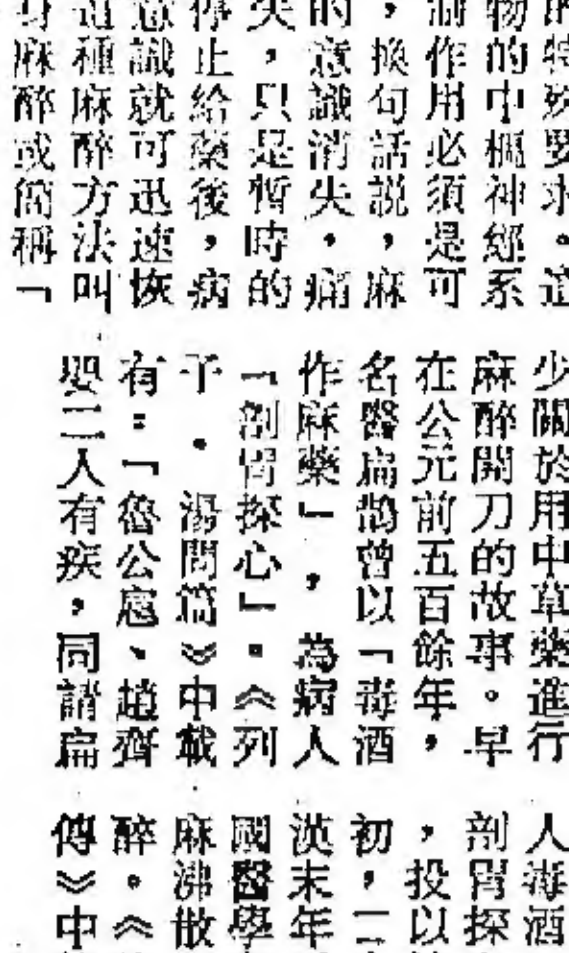 的特殊要求。這
物的中樞神經系
制作用必須是可
，換句話説，麻
的意識消失，痛
失，只是暫時的
停止給藥後，病
意識就可迅速恢
這種麻醉方法叫
身麻醉或簡稱「
少關於用中草藥進行
麻醉開刀的故事。早
在公元前五百餘年，
名醫扁鵲曾以「毒酒
作麻藥」，為病人
「剖胃探心」。《列
子．湯問篇》中載
有：「魯公扈、趙齊
嬰二人有疾，同請扁
人毒酒
剖胃探
，投以
初，二
漢末年
國醫學
麻沸散
醉。《
傳》中